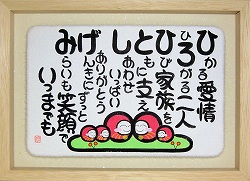 ひかる愛情
ひろがる二人
ひび家族を
ともに支え
しあわせ
いっぱい
ありがとう
げんきにずっと
みらいも笑顔で
いつまでも